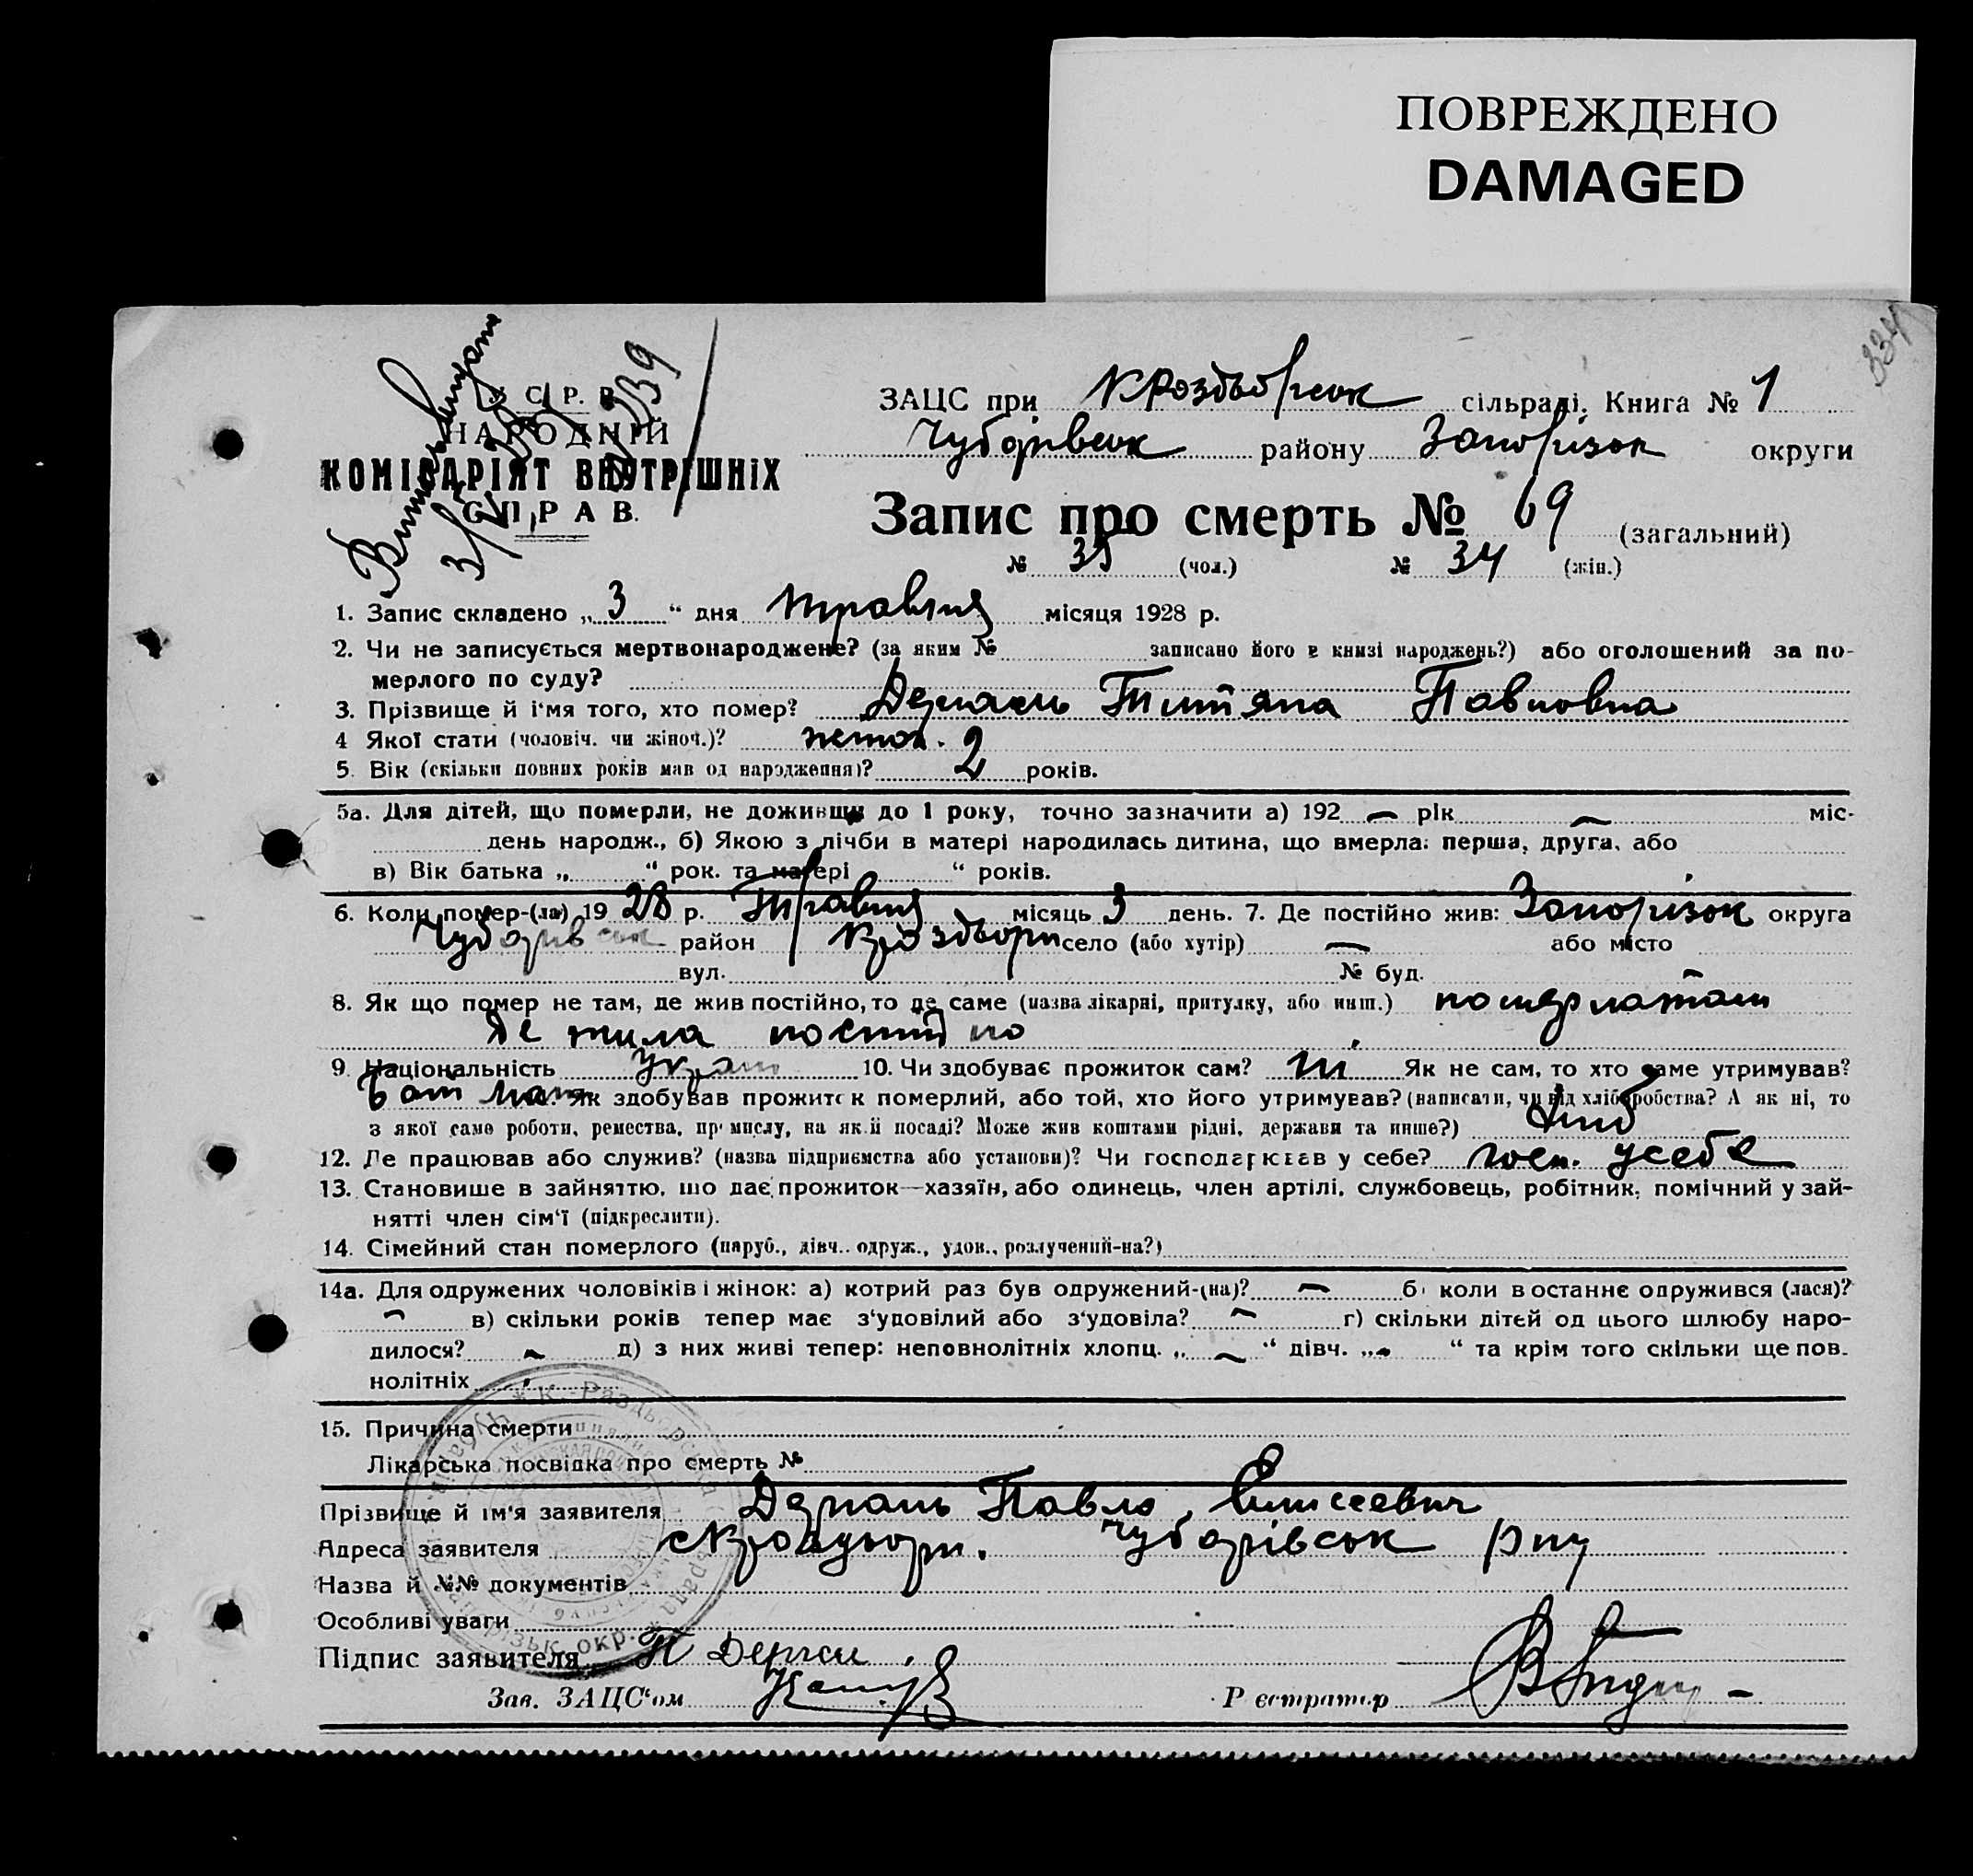 ПОВРЕЖДЕНО
DAMAGED
334
У. С. Р. Р.
НАРОДНІЙ
КОМІСАРІЯТ ВНУТРІШНІХ
СПРАВ.
ЗАЦС при К Роздьорськ сільраді. Книга № 1
Чубарівськ району Запорізьк округи
Запис про смерть № 69 (загальний)
№ 35 (чол.) № 34 (жін.)
1. Запис складено „ 3 “ дня травня місяця 1928 р.
2. Чи не записується мертвонароджене? (за яким № записано його в книзі народжень?) або оголошений за по-
мерлого по суду?
3. Прізвище й і‘мя того, хто помер? Титяна Павловна
4 Якої стати (чоловіч. чи жіноч.)? жіноч.
5. Вік (скільки повних років мав од народження)? 2 років.
5а. Для дітей, що померли, не доживши до 1 року, точно зазначити а) 192 — рік — міс-
день народж., б) Якою з лічби в матері народилась дитина, що вмерла: перша, друга, або
в) Вік батька „ “ рок. та матері “ років.
6. Коли помер-(ла) 19 28 р. Травня місяць 3 день. 7. Де постійно жив: Запорізьк округа
Чубарівськ район К Роздьори село (або хутір) — або місто
вул. № буд.
8. Як що помер не там, де жив постійно, то де саме (назва лікарні, притулку, або инш.) померла там
де жила постійно
9. Національність Украін 10. Чи здобуває прожиток сам? ні Як не сам, то хто саме утримував?
бат мати Як здобував прожиток померлий, або той, хто його утримував? (написати, чи від хліборобства? А як ні, то
з якої саме роботи, ремества, промислу, на якій посаді? Може жив коштами рідні, держави та инше?) хліб
12. Де працював або служив? (назва підприємства або установи)? Чи господарював у себе? госп. у себе
13. Становище в зайняттю, що дає прожиток—хазяїн, або одинець, член артілі, службовець, робітник, помічний у зай-
нятті член сім‘ї (підкреслити).
14. Сімейний стан померлого (паруб., дівч.. одруж., удов., розлучений-на?)
14а. Для одружених чоловіків і жінок: а) котрий раз був одружений-(на)? — б) коли востаннє одружився (лася)?
— в) скільки років тепер має з‘удовілий або з‘удовіла? — г) скільки дітей од цього шлюбу наро-
дилося? — д) з них живі тепер: неповнолітніх хлопц. „ — “ дівч. „ “ та крім того скільки ще пов.
нолітніх
15. Причина смерти
Лікарська посвідка про смерть №
Прізвище й ім‘я заявителя Павло Єлисеевич
Адреса заявителя Чубарівськ рну
Назва й №№ документів
Особливі уваги
Підпис заявителя П
Зав. ЗАЦС‘ом Реєстратор